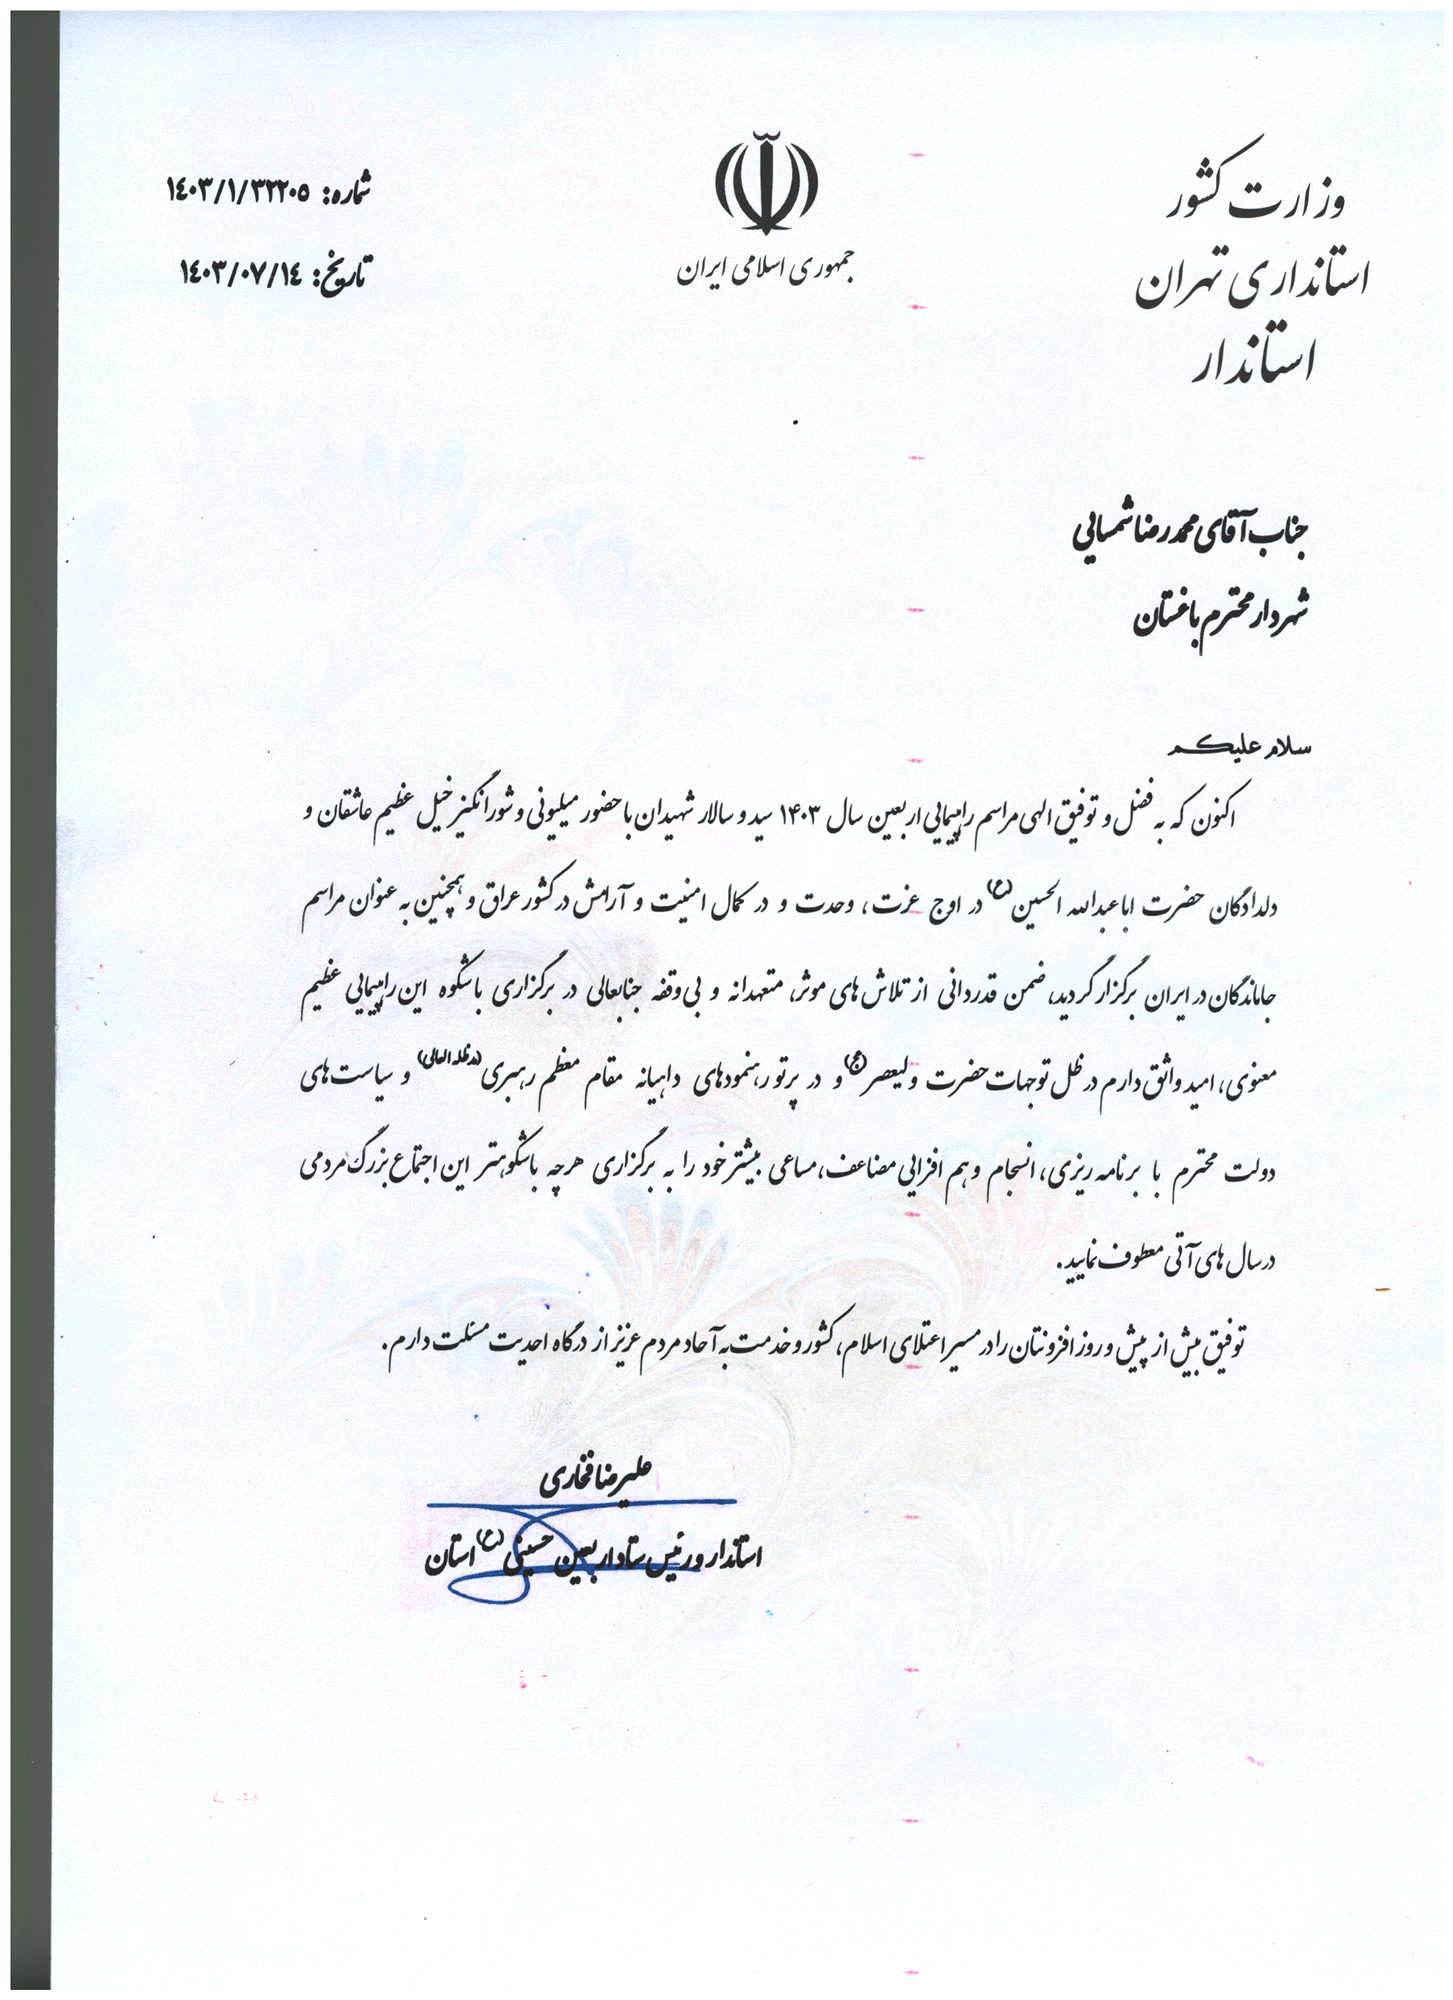 وزارت کشور
استانداری تهران
استاندار
جمهوری اسلامی ایران
شماره: ۱۴۰۳/۱/۳۲۲۰۵
تاریخ: ۱۴۰۳/۰۷/۱۴
جناب آقای محمدرضا شمسایی
شهردار محترم باغستان
سلام علیکم
اکنون که به فضل و توفیق الهی مراسم راهپیمایی اربعین سال ۱۴۰۳ سید و سالار شهیدان با حضور میلیونی و شورانگیز خیل عظیم عاشقان و
دلدادگان حضرت اباعبدالله الحسین(ع) در اوج عزت، وحدت و در کمال امنیت و آرامش در کشور عراق و همچنین به عنوان مراسم
جاماندگان در ایران برگزار گردید، ضمن قدردانی از تلاش های موثر، متعهدانه و بی‌وقفه جنابعالی در برگزاری باشکوه این راهپیمایی عظیم
معنوی، امید واثق دارم در ظل توجهات حضرت ولیعصر(عج) و در پرتو رهنمودهای داهیانه مقام معظم رهبری(مدظله العالی) و سیاست‌های
دولت محترم با برنامه ریزی، انسجام و هم افزایی مضاعف، مساعی بیشتر خود را به برگزاری هرچه باشکوهتر این اجتماع بزرگ مردمی
در سال های آتی معطوف نمایید.
توفیق بیش از پیش و روزافزونتان را در مسیر اعتلای اسلام، کشور و خدمت به آحاد مردم عزیز از درگاه احدیت مسئلت دارم.
علیرضا فخاری
استاندار و رئیس ستاد اربعین حسینی(ع) استان